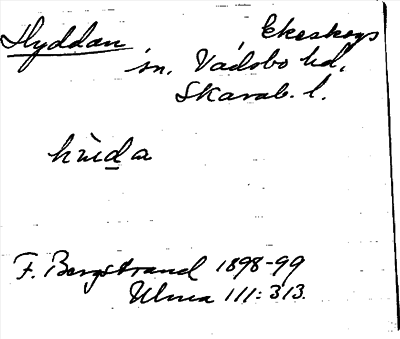 Hyddan, Ekeskogs
sn. Vadsbo hd,
Skarab. l.
F. Bergstrand 1898-99
Ulma 111:313.